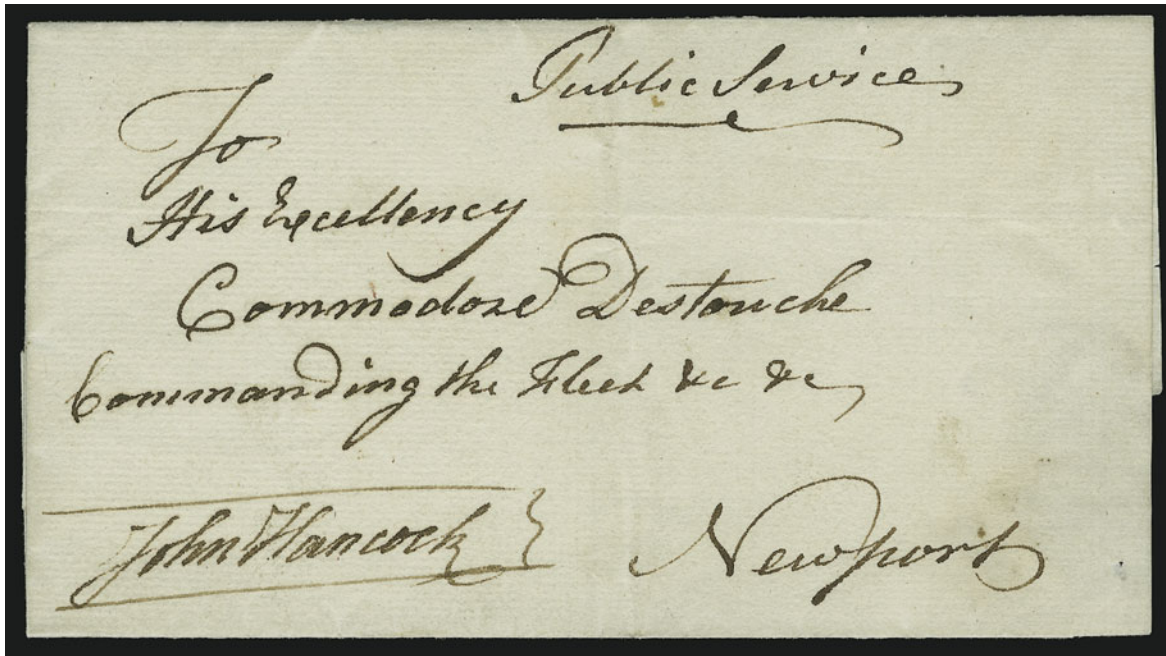 Public Service
To
His Excellency
Commodore Destouche
Commanding the Fleet &c &c
John Hancock
Newport